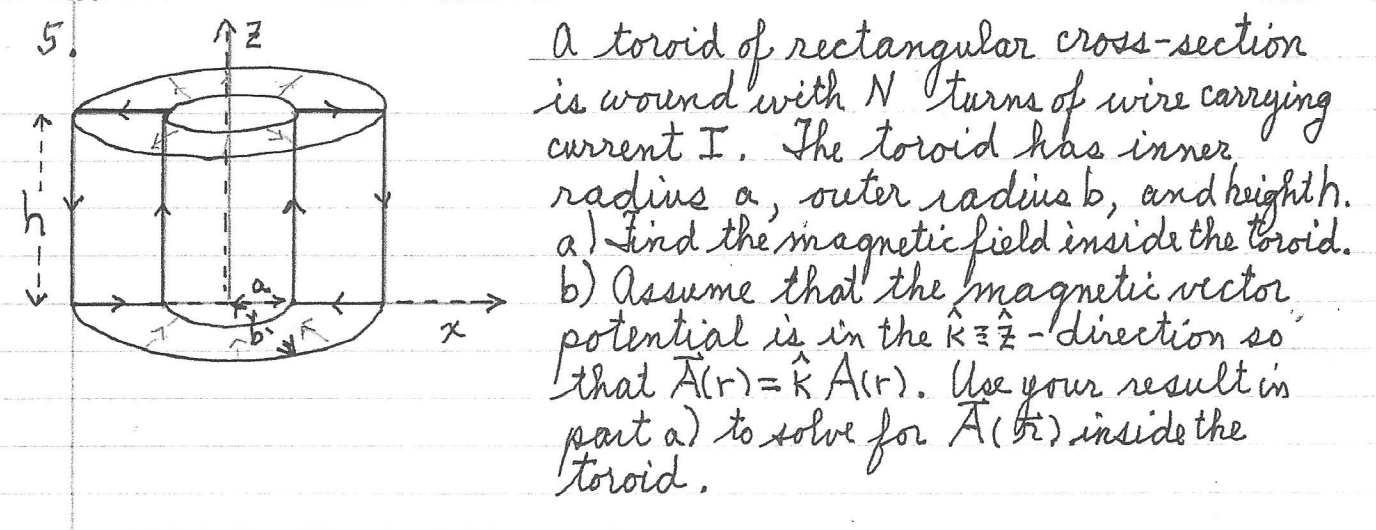 5.
z
h
a
b
x
A toroid of rectangular cross-section
is wound with N turns of wire carrying
current I. The toroid has inner
radius a, outer radius b, and height h.
a) Find the magnetic field inside the toroid.
b) Assume that the magnetic vector
potential is in the k̂ ≡ ẑ - direction so
that A⃗(r) = k̂ A(r). Use your result in
part a) to solve for A⃗(r⃗) inside the
toroid.